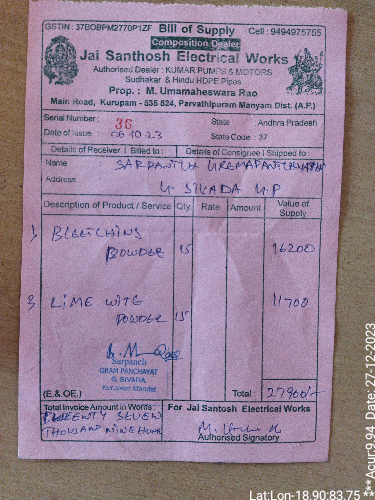 GSTIN : 37BOBPM2770P1ZF Bill of Supply Cell : 9494975755
Composition Dealer
Jai Santhosh Electrical Works
Authorised Dealer : KUMAR PUMPS & MOTORS
Sudhakar & Hindu HDPE Pipes
Prop. : M. Umamaheswara Rao
Main Road, Kurupam - 535 524, Parvathipuram Manyam Dist. (A.P.)
Serial Number : 36 State : Andhra Pradesh
Date of Issue : 06 10 23 State Code : 37
Details of Receiver / Billed to : Details of Consignee / Shipped to
Name : SARPANTCH
Address G. SIVADA
Description of Product / Service Qty. Rate Amount Value of Supply
1, BLEETCHING
POWDER 15 16200
2, LIME WITE
POWDER 15 11700
Sarpanch
GRAM PANCHAYAT
G. SIVADA
Kurupam Mandal
(E.&OE.) Total : 27900/-
Total Invoice Amount in Words : For Jai Santosh Electrical Works
SEVEN
THOUSAND NINE HUND
Authorised Signatory
Lat:Lon-18.90:83.75
***Acur:9.94 Date:27-12-2023